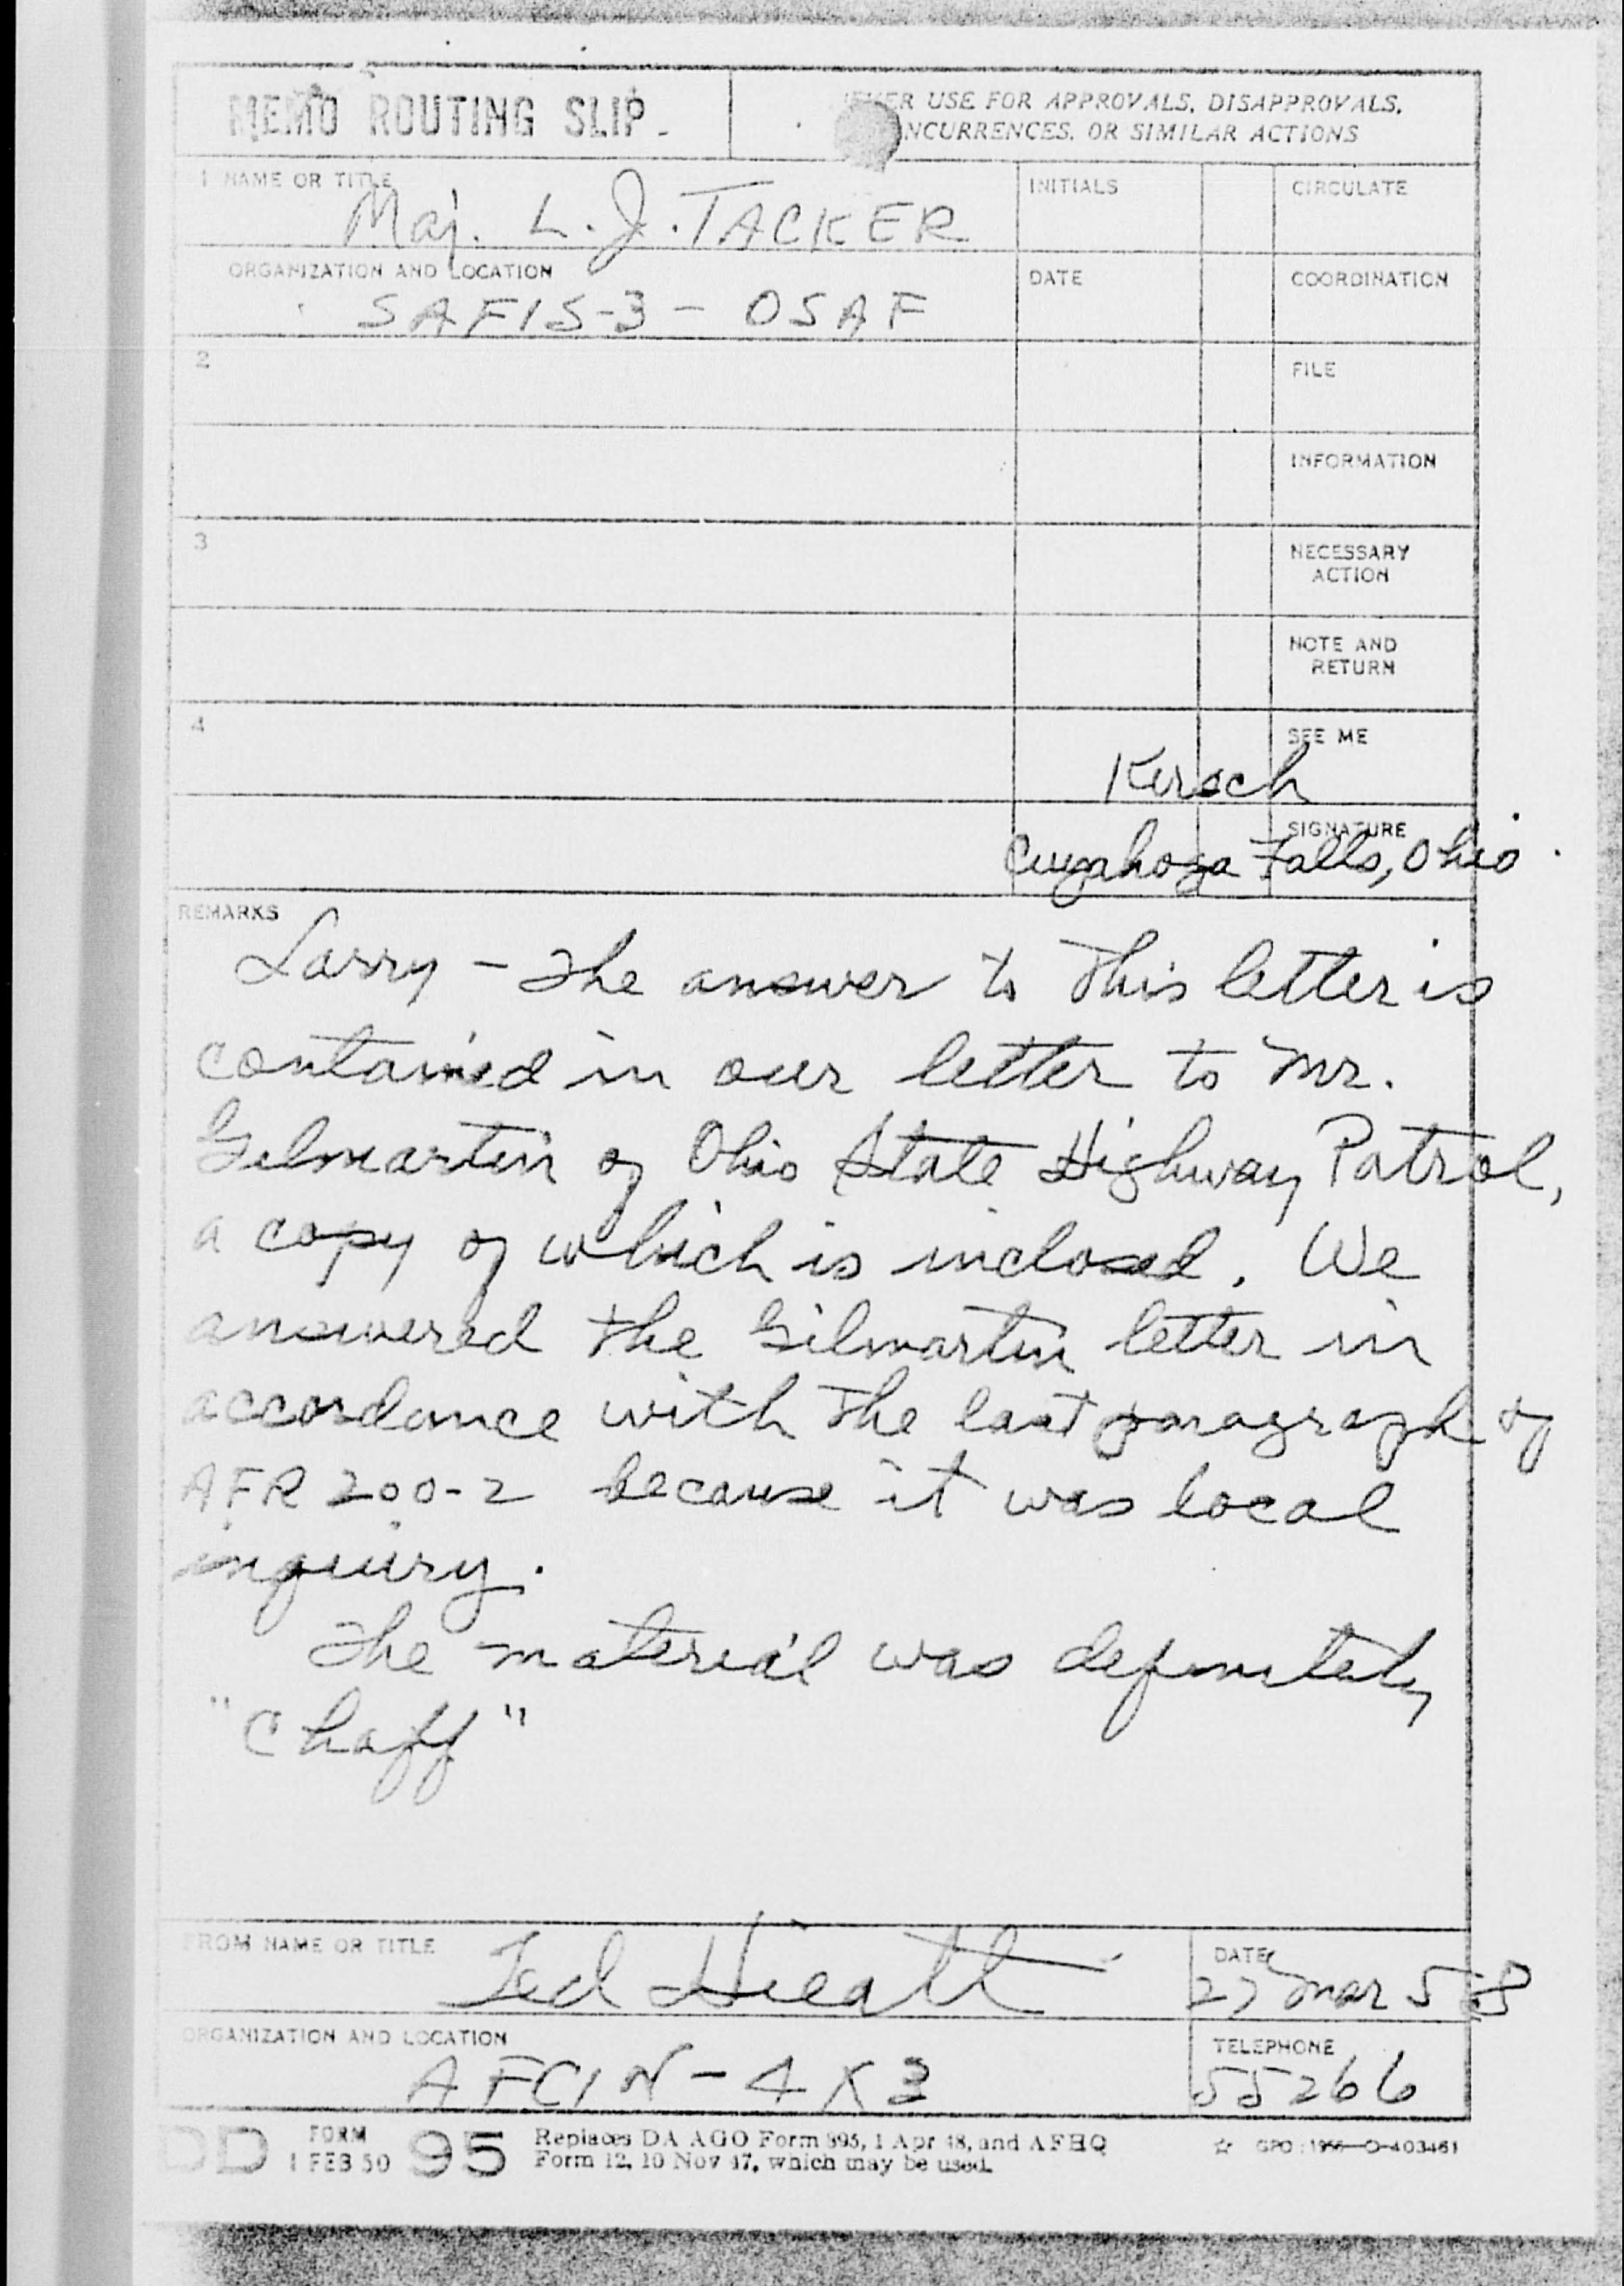 MEMO ROUTING SLIP
USE FOR APPROVALS, DISAPPROVALS,
NCURRENCES, OR SIMILAR ACTIONS
1 NAME OR TITLE
Maj. L. J. TACKER
INITIALS
CIRCULATE
ORGANIZATION AND LOCATION
SAFIS-3 - OSAF
DATE
COORDINATION
2
FILE
INFORMATION
3
NECESSARY
ACTION
NOTE AND
RETURN
4
SEE ME
Kersch
SIGNATURE
Cuyahoga Falls, Ohio
REMARKS
Larry - The answer to this letter is
contained in our letter to Mr.
Gilmartin of Ohio State Highway Patrol,
a copy of which is inclosed. We
answered the Gilmartin letter in
accordance with the last paragraph of
AFR 200-2 because it was local
inquiry.
The material was definitely
"Chaff"
FROM NAME OR TITLE
Ted Hieatt
DATE
27 Mar 58
ORGANIZATION AND LOCATION
AFCIN-4X3
TELEPHONE
55266
DD FORM 1 FEB 50 95
Replaces DA AGO Form 895, 1 Apr 48, and AFHQ
Form 12, 10 Nov 47, which may be used.
☆ GPO : O-403461